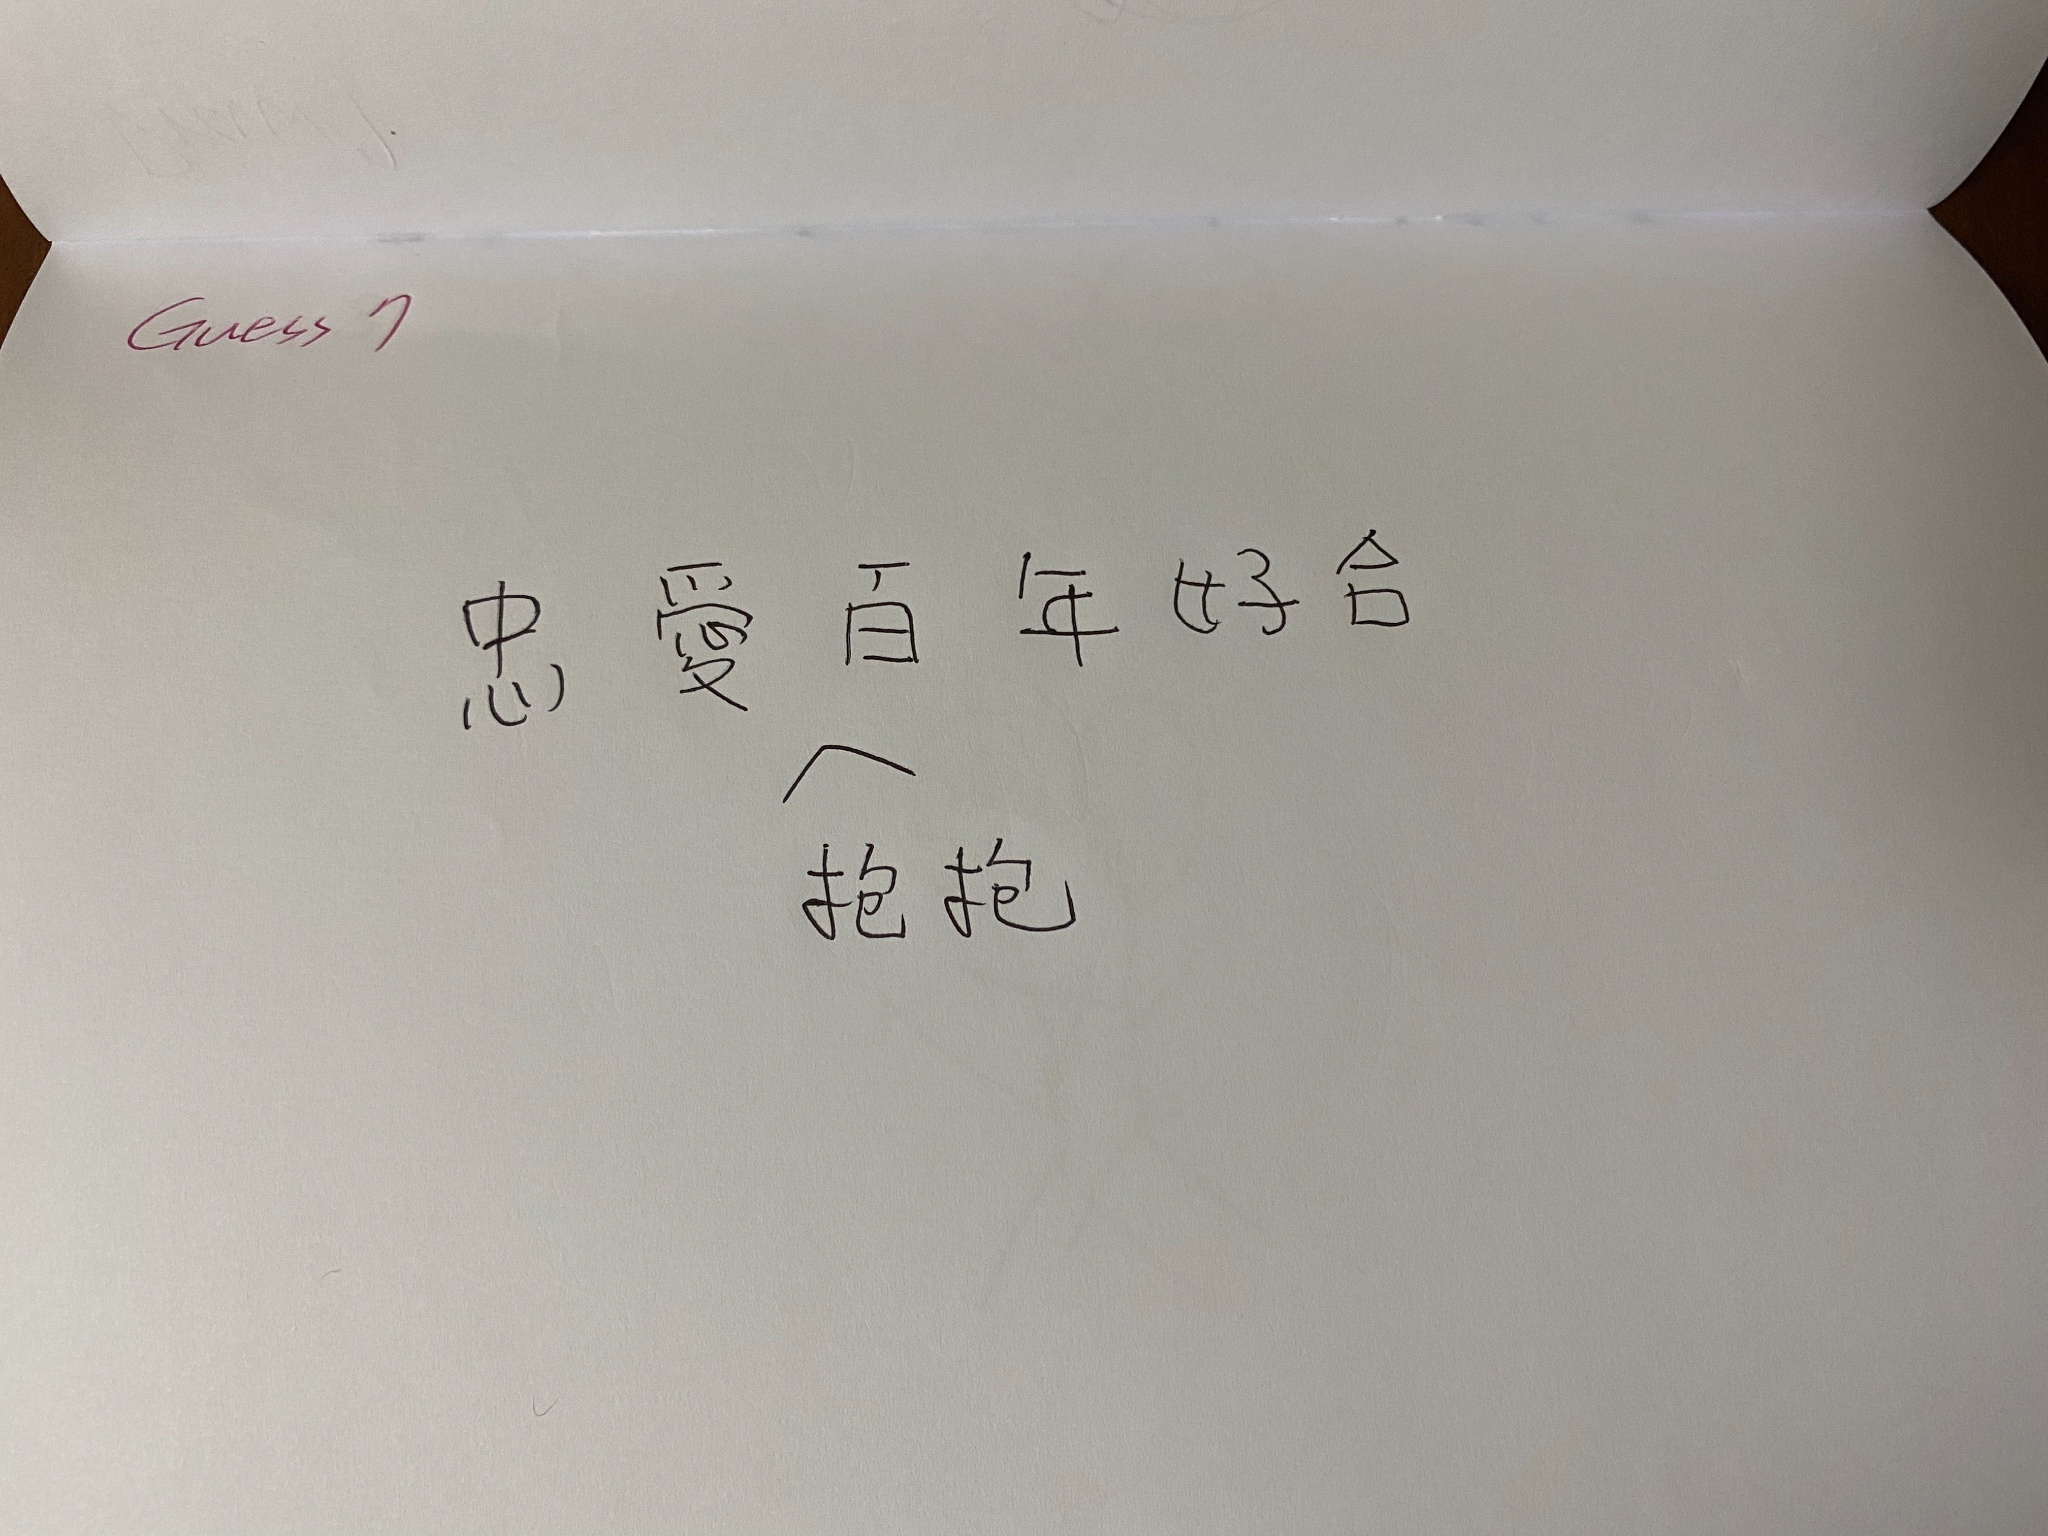 Guess 7
忠愛百年好合
へ
抱抱